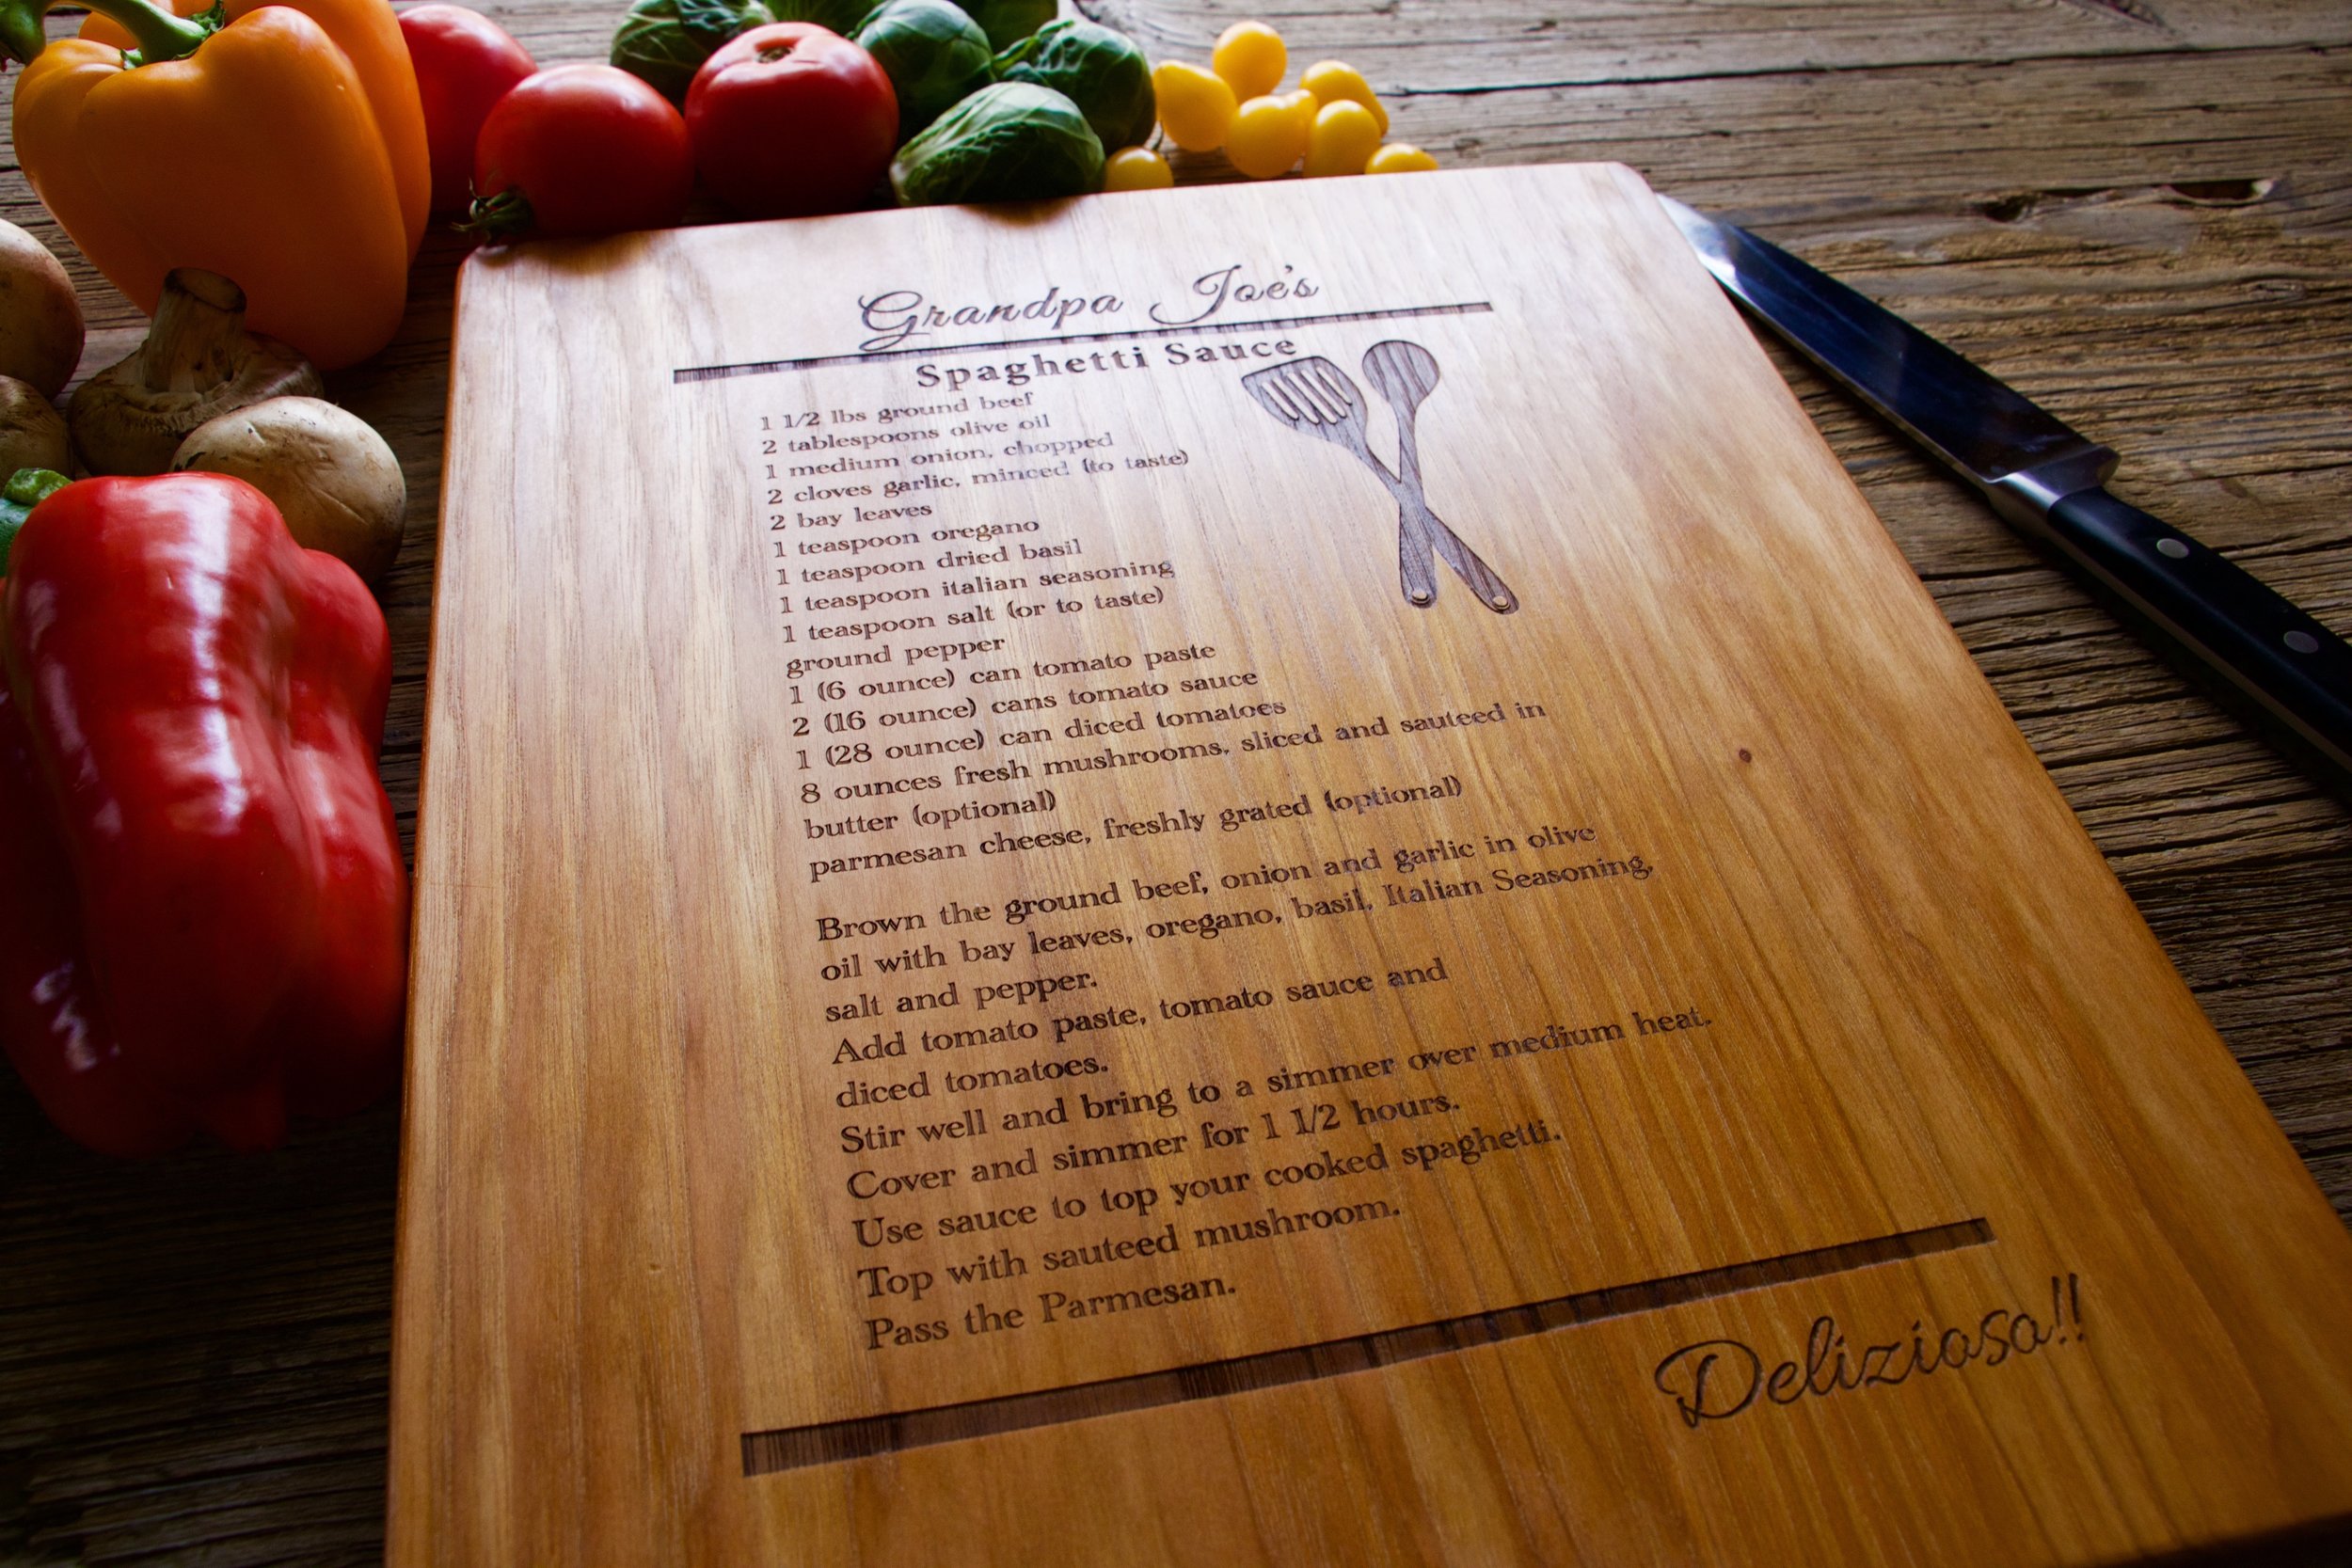 Grandpa Joe's
Spaghetti Sauce
1 1/2 lbs ground beef
2 tablespoons olive oil
1 medium onion, chopped
2 cloves garlic, minced (to taste)
2 bay leaves
1 teaspoon oregano
1 teaspoon dried basil
1 teaspoon italian seasoning
1 teaspoon salt (or to taste)
ground pepper
1 (6 ounce) can tomato paste
2 (16 ounce) cans tomato sauce
1 (28 ounce) can diced tomatoes
8 ounces fresh mushrooms, sliced and sauteed in
butter (optional)
parmesan cheese, freshly grated (optional)
Brown the ground beef, onion and garlic in olive
oil with bay leaves, oregano, basil, Italian Seasoning,
salt and pepper.
Add tomato paste, tomato sauce and
diced tomatoes.
Stir well and bring to a simmer over medium heat.
Cover and simmer for 1 1/2 hours.
Use sauce to top your cooked spaghetti.
Top with sauteed mushroom.
Pass the Parmesan.
Delizioso!!